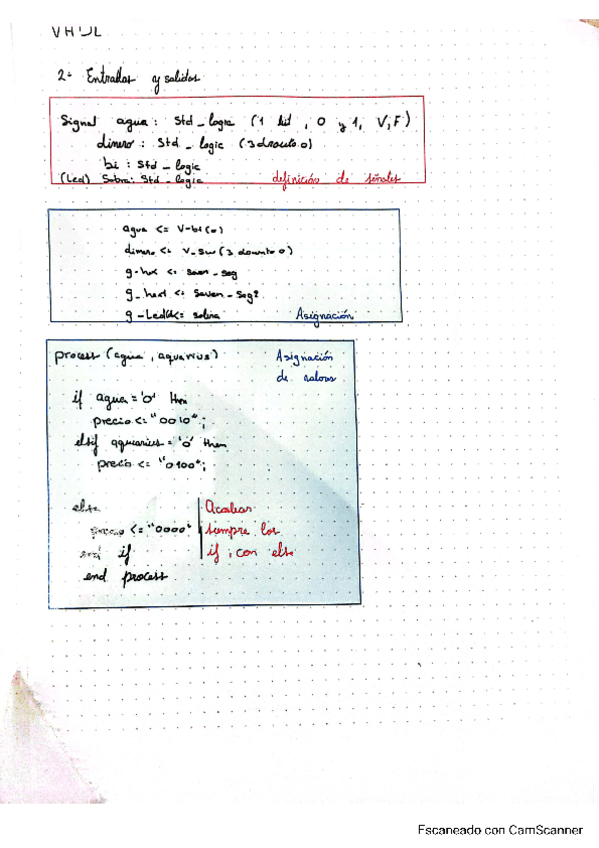 VHDL
2- Entradas y salidas
Signal agua : Std_logic (1 bit , 0 y 1, V,F)
dinero : Std_logic (3 downto 0)
bi : Std_logic
(Led) Sobra: Std_logic definición de señales
agua <= V-bt(0)
dinero <= V_Sw(3 downto 0)
g-hex <= Seven-seg
g_hex1 <= Seven_Seg2
<= sobra Asignación
process (agua, aquarius) Asignación
de valores
if agua = '0' then
precio <= "0010";
elsif aquarius = '0' then
precio <= "0100";
else Acabar
precio <= "0000" siempre los
end if if ; con else
end process
Escaneado con CamScanner